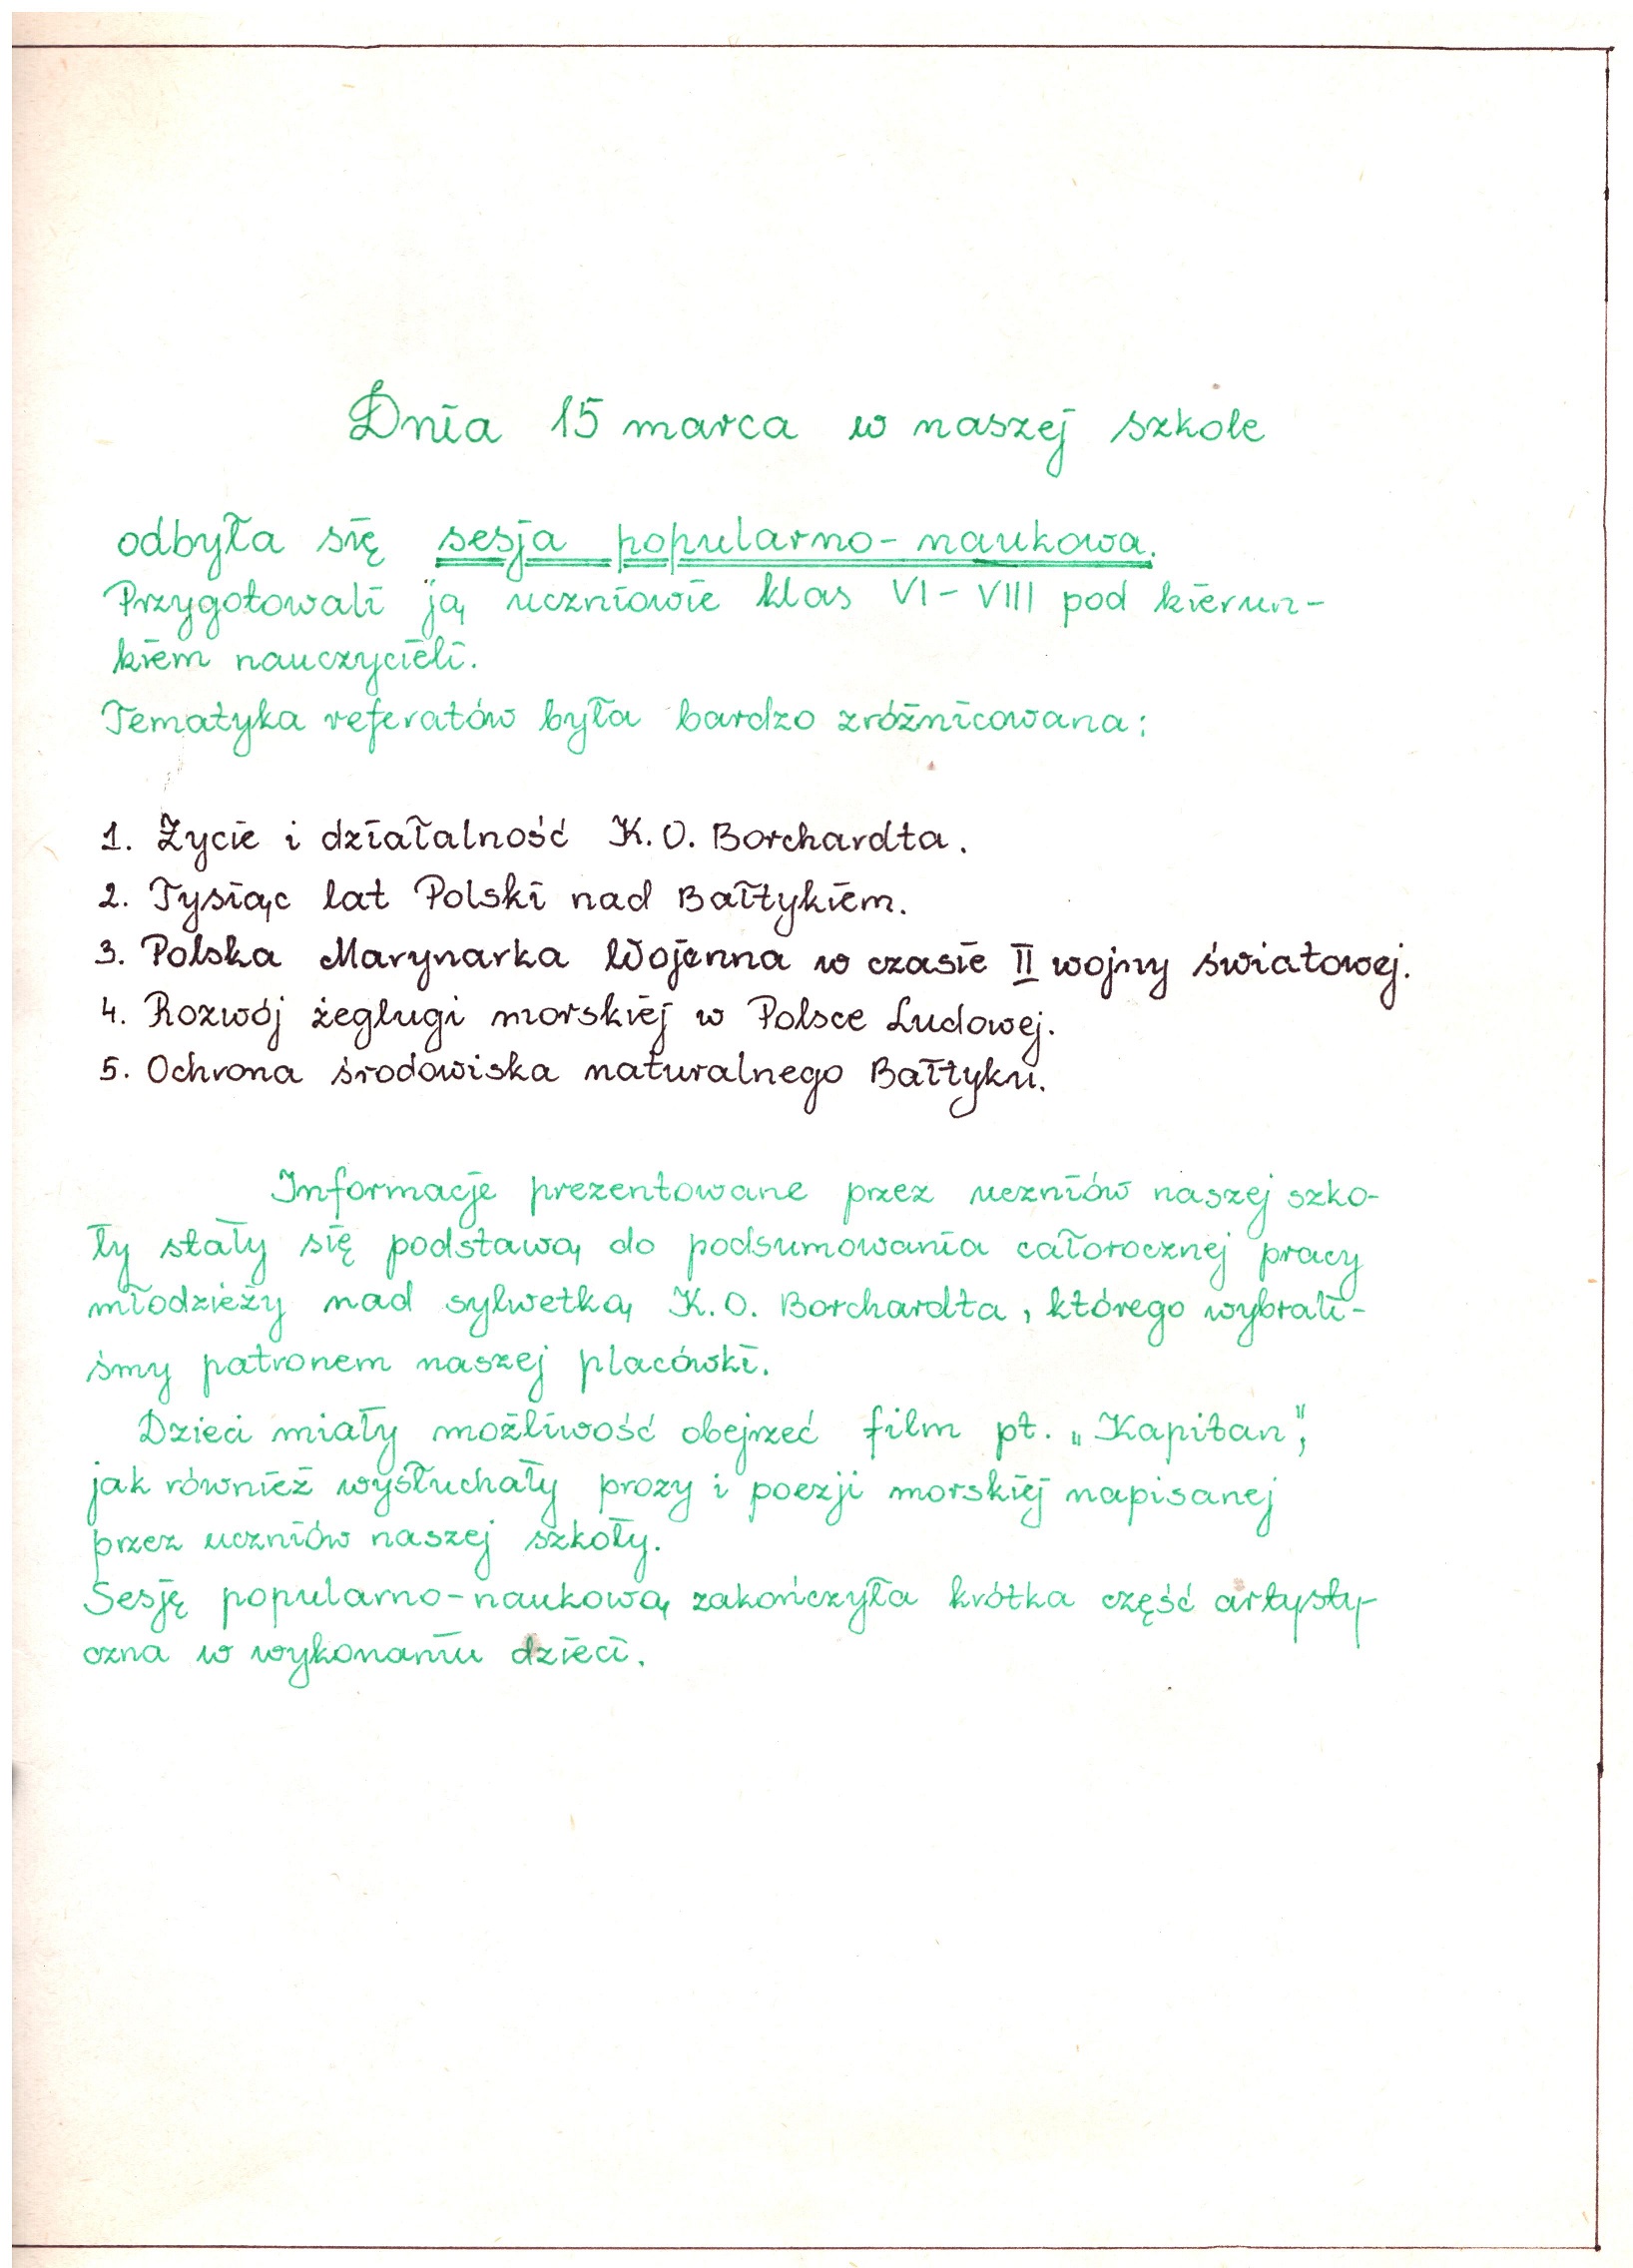 Dnia 15 marca w naszej szkole
odbyła się sesja popularno-naukowa.
Przygotowali ją uczniowie klas VI-VIII pod kierun-
kiem nauczycieli.
Tematyka referatów była bardzo zróżnicowana:
1. Życie i działalność K.O. Borchardta.
2. Tysiąc lat Polski nad Bałtykiem.
3. Polska Marynarka Wojenna w czasie II wojny światowej.
4. Rozwój żeglugi morskiej w Polsce Ludowej.
5. Ochrona środowiska naturalnego Bałtyku.
Informacje prezentowane przez uczniów naszej szko-
ły stały się podstawą do podsumowania całorocznej pracy
młodzieży nad sylwetką K.O. Borchardta, którego wybrali-
śmy patronem naszej placówki.
Dzieci miały możliwość obejrzeć film pt. „Kapitan",
jak również wysłuchały prozy i poezji morskiej napisanej
przez uczniów naszej szkoły.
Sesję popularno-naukową zakończyła krótka część artysty-
czna w wykonaniu dzieci.